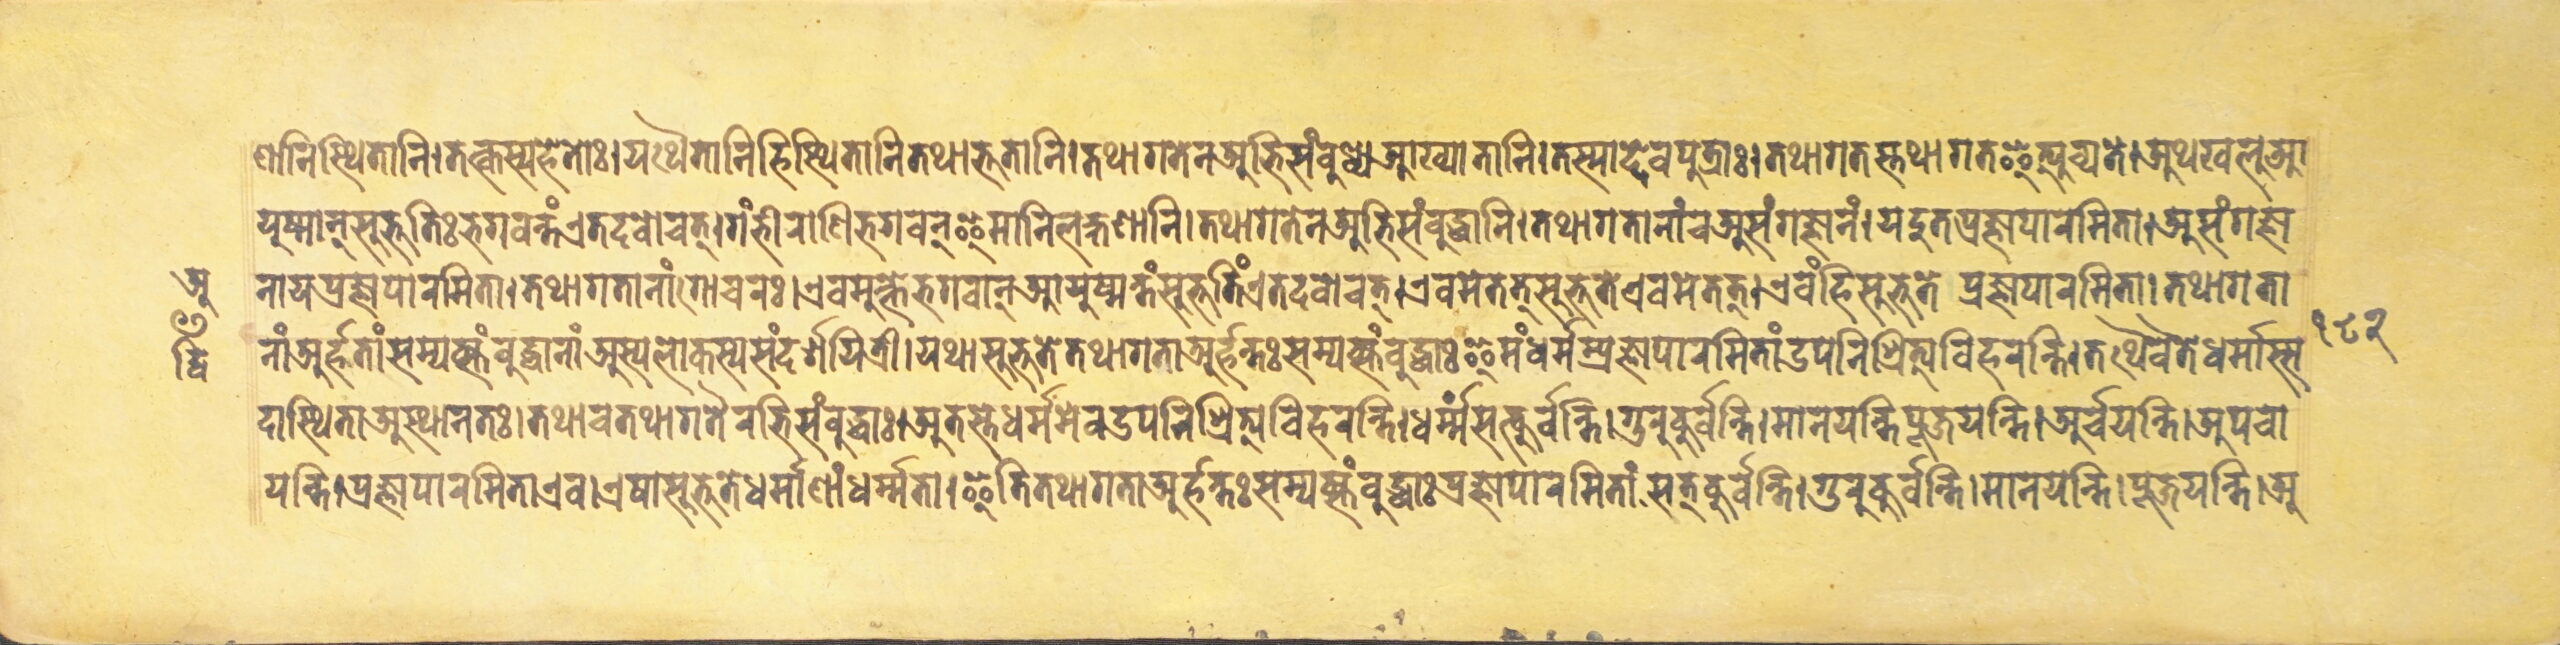 णानिस्थितानि।तत्कस्यहेतोः।यथैतानिहिस्थितानितथाभूतानि।तथागतेनअभिसंबुध्यआख्यातानि।तस्माद्देवपुत्राः।तथागतस्तथागतइत्युच्यते।अथखलुआ
युष्मान्सुभूतिःभगवन्तंएतदवोचत्।गंभीराणिभगवन्इमानिलक्षणानि।तथागतेनअभिसंबुद्धानि।तथागतानांचअसंगज्ञानं।यदुतप्रज्ञापारमिता।असंगज्ञा
नायप्रज्ञापारमिता।तथागतानांगोचरः।एवमुक्तेभगवान्आयुष्मन्तंसुभूतिंएतदवोचत्।एवमेतत्सुभूतेएवमेतत्।एवंहिसुभूते प्रज्ञापारमिता।तथागता
नांअर्हतांसम्यक्संबुद्धानांअस्यलोकस्यसंदर्शयित्री।यथासुभूतेतथागताअर्हन्तःसम्यक्संबुद्धाःइमंधर्मम्प्रज्ञापारमितांउपनिश्रित्यविहरन्ति।तथैवैतेधर्मास्स
दास्थिताअस्थानतः।तथाचतथागतैरभिसंबुद्धाः।अतस्तेधर्ममेवउपनिश्रित्यविहरन्ति।धर्म्मंसत्कुर्वन्ति।गुरुकुर्वन्ति।मानयन्तिपूजयन्ति।अर्चयन्ति।अपचा
यन्ति।प्रज्ञापारमिताएव।एषासुभूतेधर्माणांधर्म्मता।इतितथागताअर्हन्तःसम्यक्संबुद्धाःप्रज्ञापारमितां सत्कुर्वन्ति।गुरुकुर्वन्ति।मानयन्ति।पूजयन्ति।अ
अ
द्वि
१८२